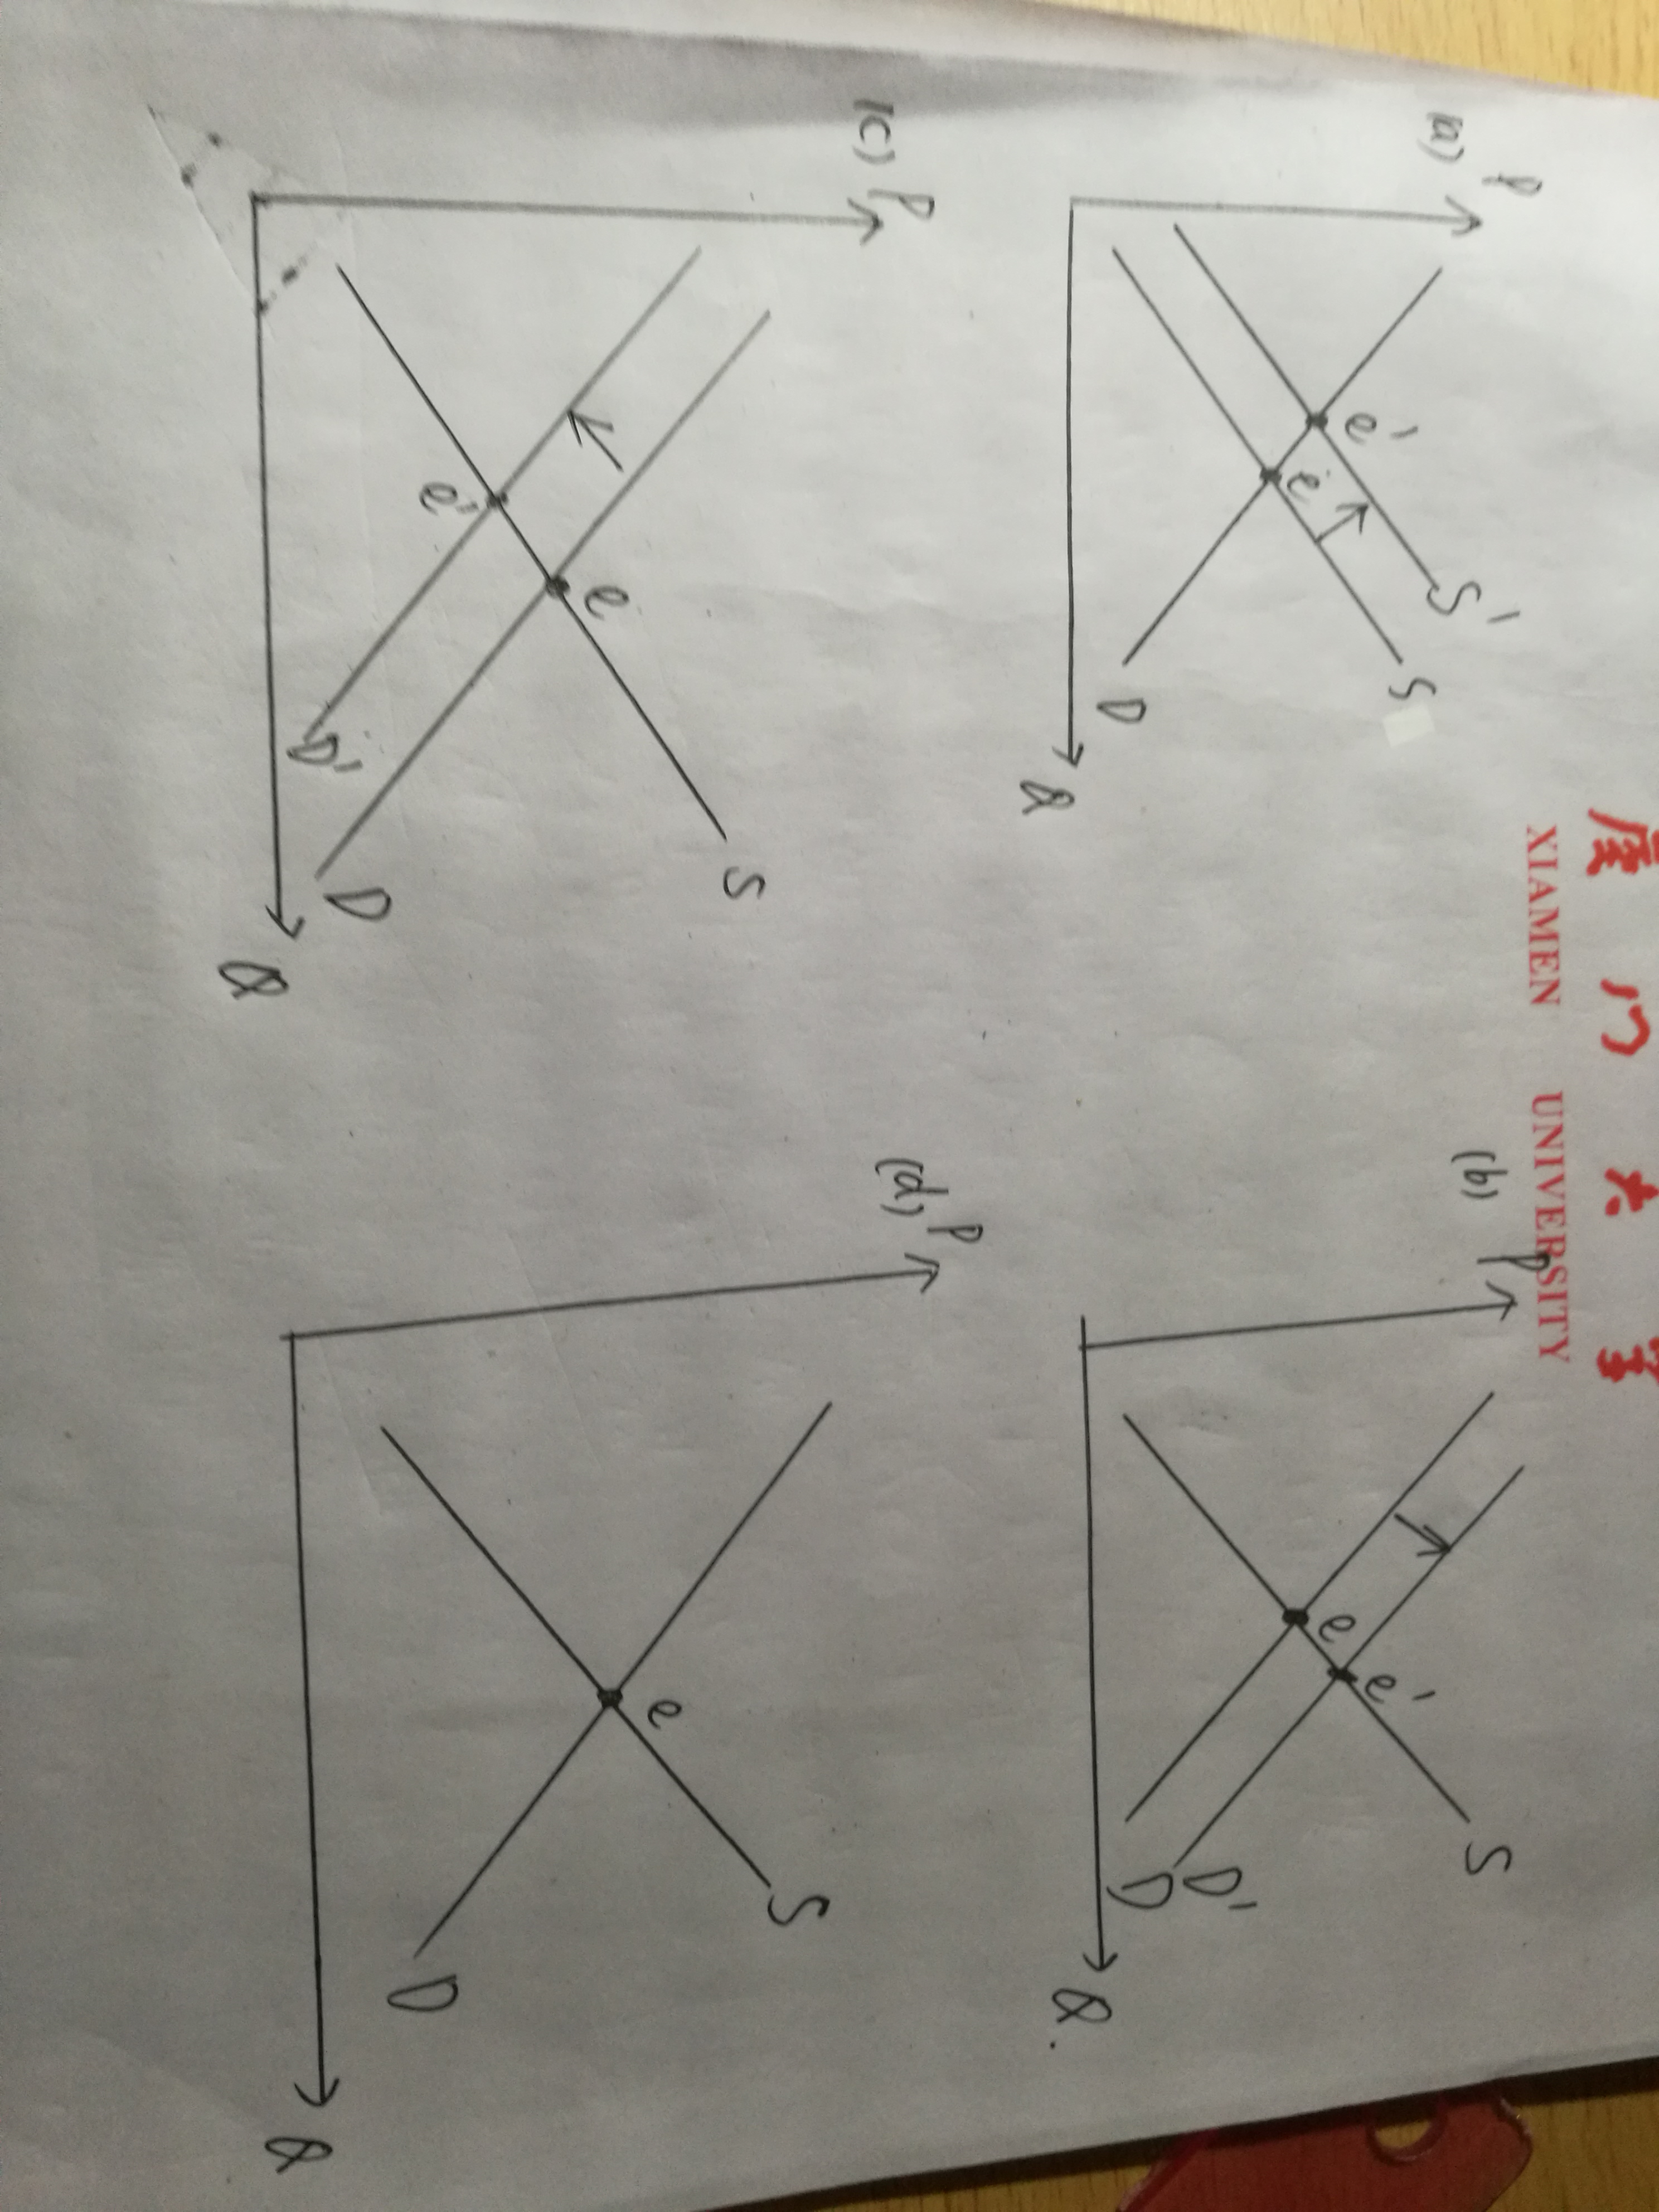 厦门大学
XIAMEN UNIVERSITY
(a) P
S'
S
e'
e
D
Q
(b) P
S
e
e'
D'
D
Q.
(c) P
S
e
e'
D'
D
Q
(d) P
S
e
D
Q